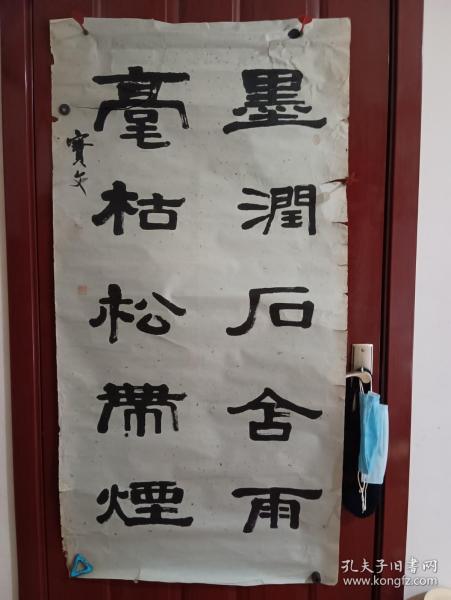 墨潤石含雨
毫枯松帶煙
寶文
孔夫子旧书网
www.kongfz.com